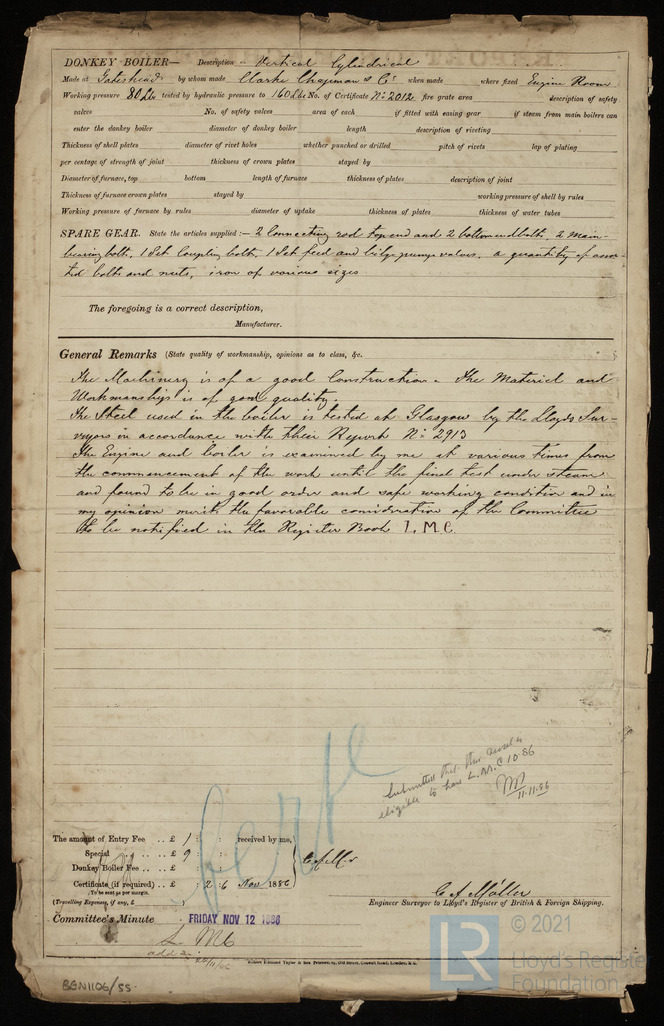 DONKEY BOILER— Description — Vertical Cylindrical
Made at Gateshead by whom made Clarke Chapman & Co when made where fixed Engine Room
Working pressure 80 Lbs tested by hydraulic pressure to 160 Lbs No. of Certificate No 2012 fire grate area description of safety
valves No. of safety valves area of each if fitted with easing gear if steam from main boilers can
enter the donkey boiler diameter of donkey boiler length description of riveting
Thickness of shell plates diameter of rivet holes whether punched or drilled pitch of rivets lap of plating
per centage of strength of joint thickness of crown plates stayed by
Diameter of furnace, top bottom length of furnace thickness of plates description of joint
Thickness of furnace crown plates stayed by working pressure of shell by rules
Working pressure of furnace by rules diameter of uptake thickness of plates thickness of water tubes
SPARE GEAR. State the articles supplied:— 2 Connecting rod top end and 2 bottom end bolts, 2 Main-
bearing bolts, 1 Set Coupling bolts, 1 Set feed and bilge pump valves, a quantity of assor-
ted bolts and nuts, iron of various sizes
The foregoing is a correct description,
Manufacturer.
General Remarks (State quality of workmanship, opinions as to class, &c.
The Machinery is of a good Construction. The Material and
Workmanship is of good quality.
The Steel used in the boiler is tested at Glasgow by the Lloyds Sur-
veyors in accordance with their Report No 2913
The Engine and boiler is examined by me at various times from
the commencement of the work until the final test under steam
and found to be in good order and safe working condition and in
my opinion merit the favorable consideration of the Committee
to be notified in the Register Book L.M.C.
Submitted that this vessel is
eligible to have L.M.C 10.86
11.11.86
The amount of Entry Fee .. £ 1 : : received by me,
Special .. .. £ 9 :
Donkey Boiler Fee .. .. £ :
Certificate (if required) .. £ : 2 6 Nov 1886
To be sent as per margin.
(Travelling Expenses, if any, £ )
C. A. Möller
Engineer Surveyor to Lloyd's Register of British & Foreign Shipping.
Committee's Minute FRIDAY NOV 12 1886
L. MC
Robert Edmund Taylor & Son Printers, 19, Old Street, Goswell Road, London, E.C.
BGN1106/55
LR
© 2021
Lloyd's Register
Foundation